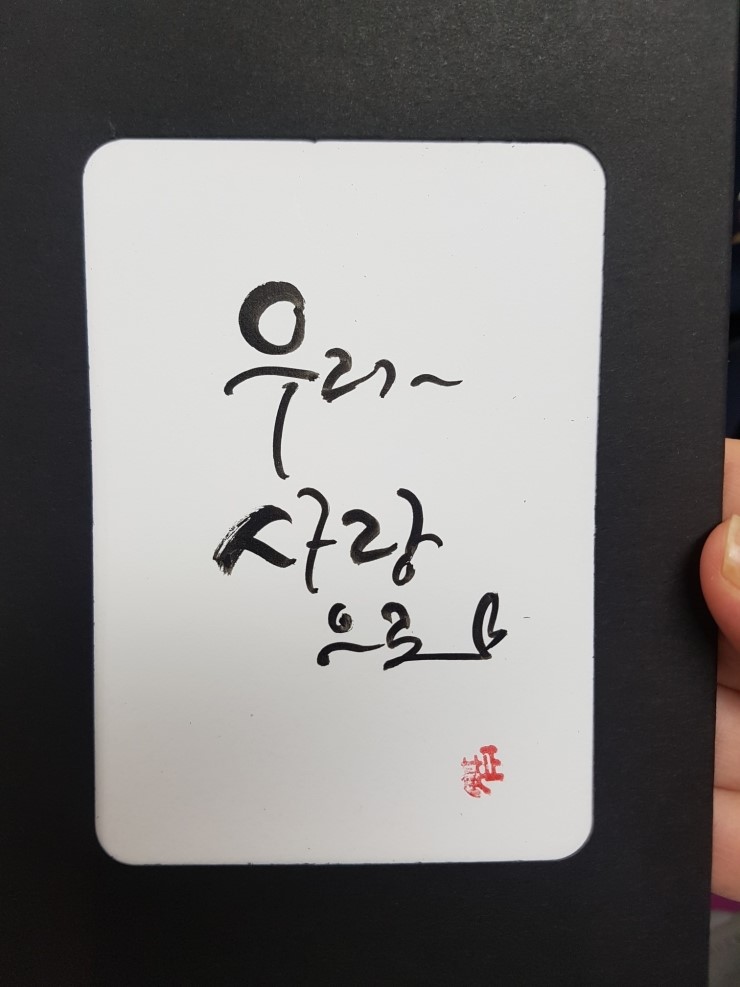 우리~
사랑
으로